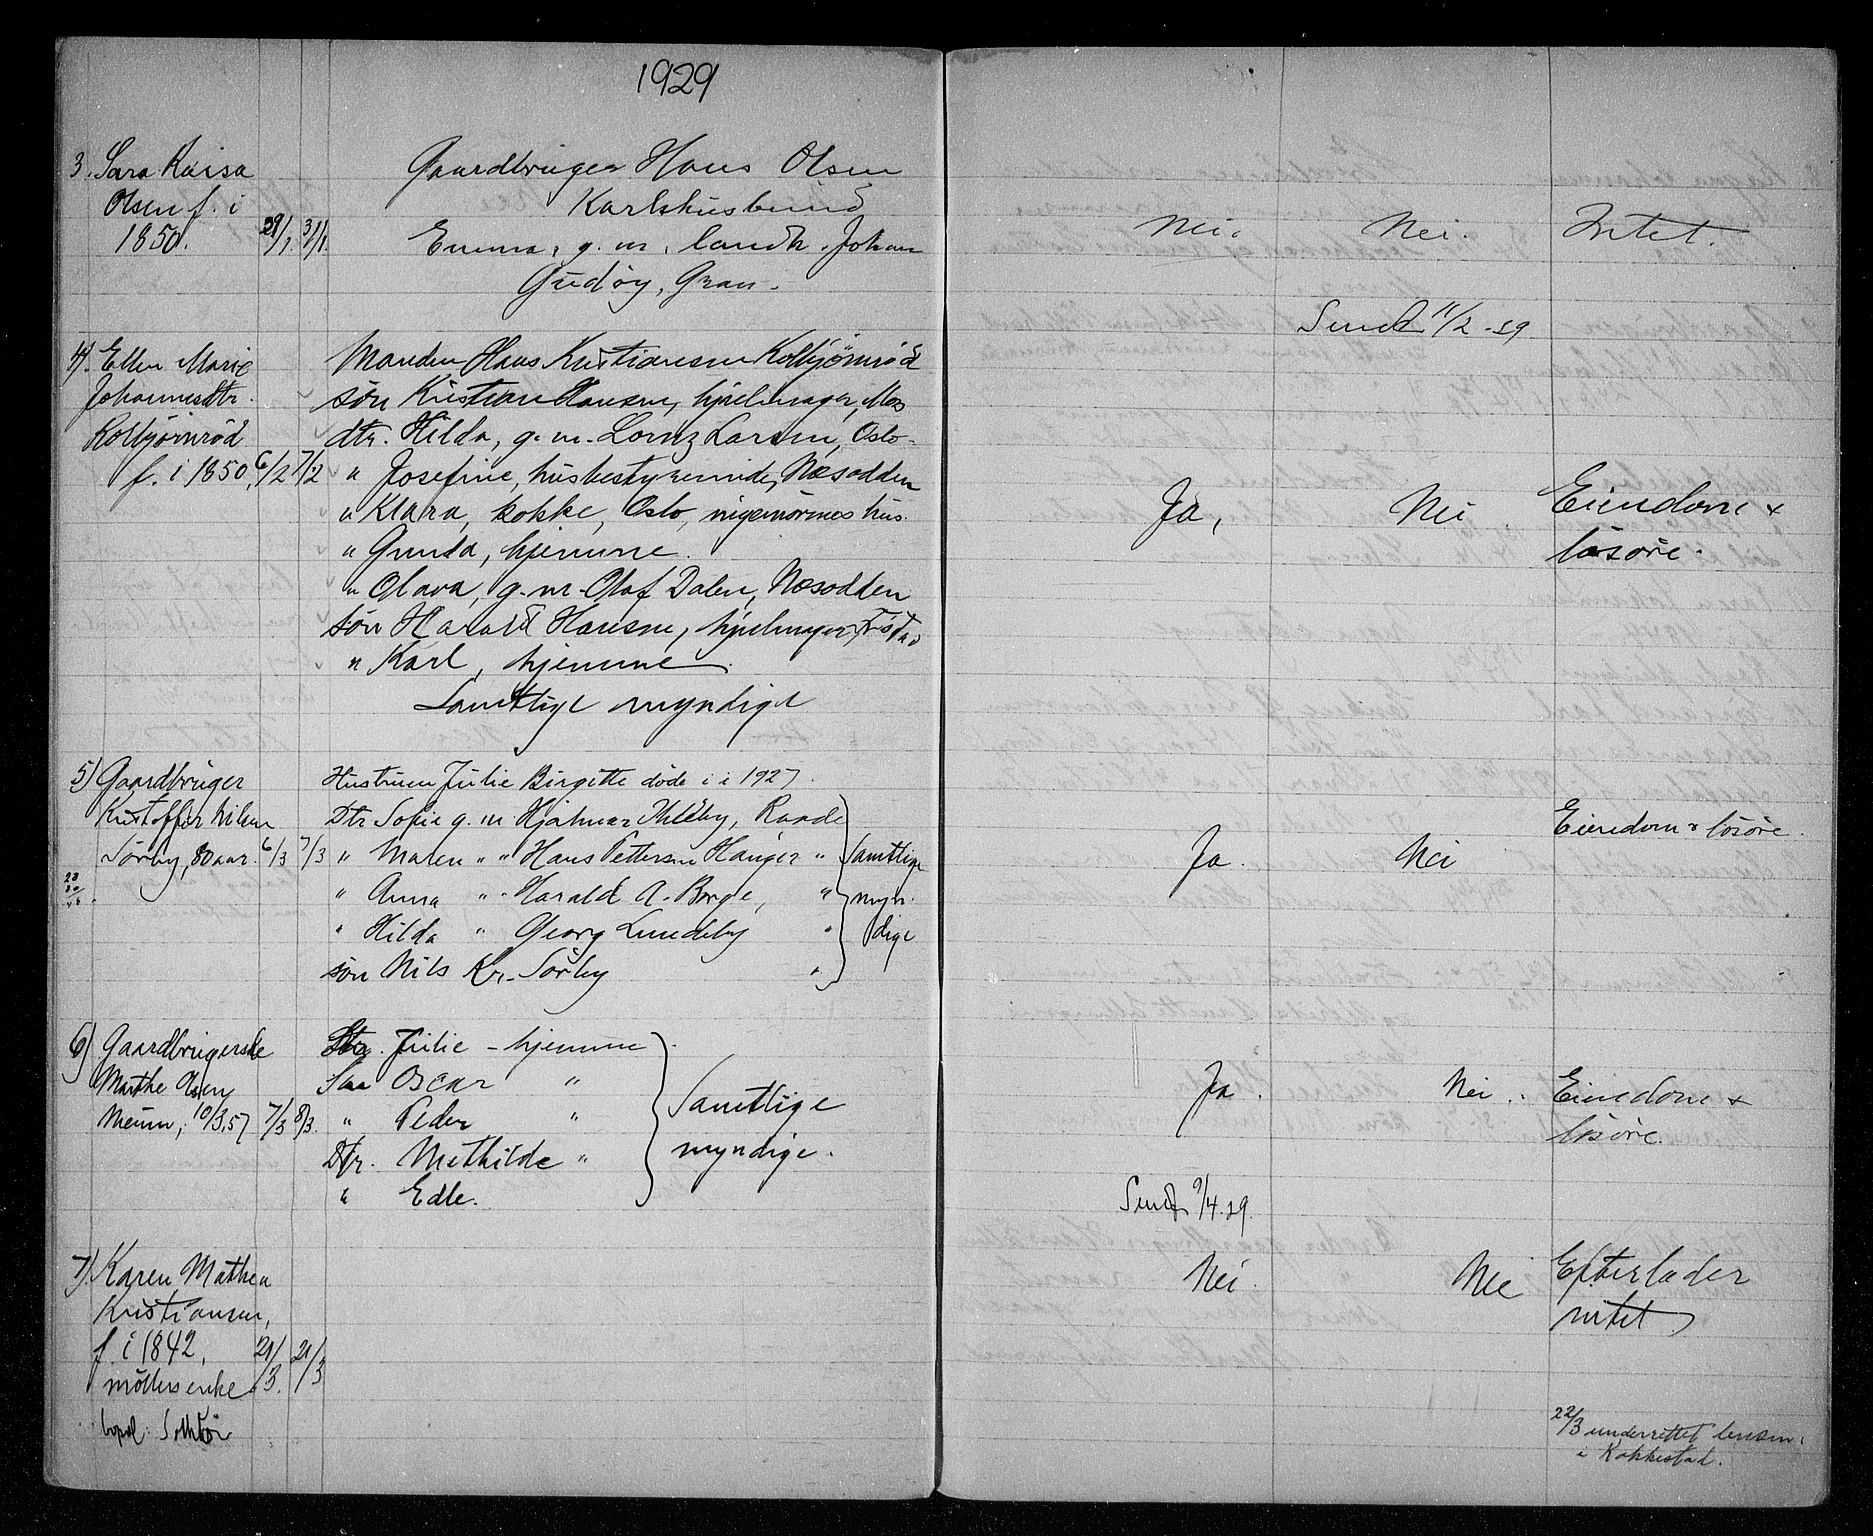 1929
3. Sara Kaisa
Olsen f. i
1850. 29/1 31/1.
Gaardbruger Hans Olsen
Karlshusbund
Emma, g. m. landh. Johan
Gudøy, Gran.
Nei. Nei. Intet.
Sendt 11/2-29
4). Ellen Marie
Johannesdtr.
Kolbjørnrød
f. i 1850, 6/2 7/2
Manden Hans Kristiansen Kolbjørnrød
søn Kristian Hansen, hjulmager, Mos
dtr. Hilda, g. m. Lornz Larsen, Oslo.
" Josefine, husbestyrerinde, Næsodden
" Klara, kokke, Oslo, ingeniørnes hus.
" Gunda, hjemme.
" Olava, g. m. Olaf Dalen, Næsodden
søn Harald Hansen, hjulmager,
" Karl, hjemme.
Samtlige myndige
Ja, Nei. Eiendom &
løsøre.
5) Gaardbruger
Kristoffer Nilsen
Sørby, 80 aar. 6/3 7/3
Hustruen Julie Birgitte døde i i 1927.
Dtr Sofie g. m. Hjalmar Huseby, Raade
" Maren " " Hans Pettersen Hauger "
" Anna " " Harald A. Borge, "
" Hilda " Georg Lundeby "
søn Nils Kr. Sørby "
Samtlige
myn.
dige
Ja. Nei Eiendom & løsøre.
6) Gaardbrugerske
Marthe Olsen
Meum, 10/3.57 7/3 8/3.
Dtr. Julie - hjemme
Søn Oscar "
" Peder "
Dtr. Mathilde "
" Edle.
Samtlige
myndige.
Ja. Nei. Eiendom &
løsøre.
Sendt 9/4.29.
7). Karen Mathea
Kristiansen,
f. i 1842, 21/3. 21/3
møllerenke
bopæl:
Nei. Nei Efterlader
intet
22/3 underrettet lensm.
i Rakkestad.